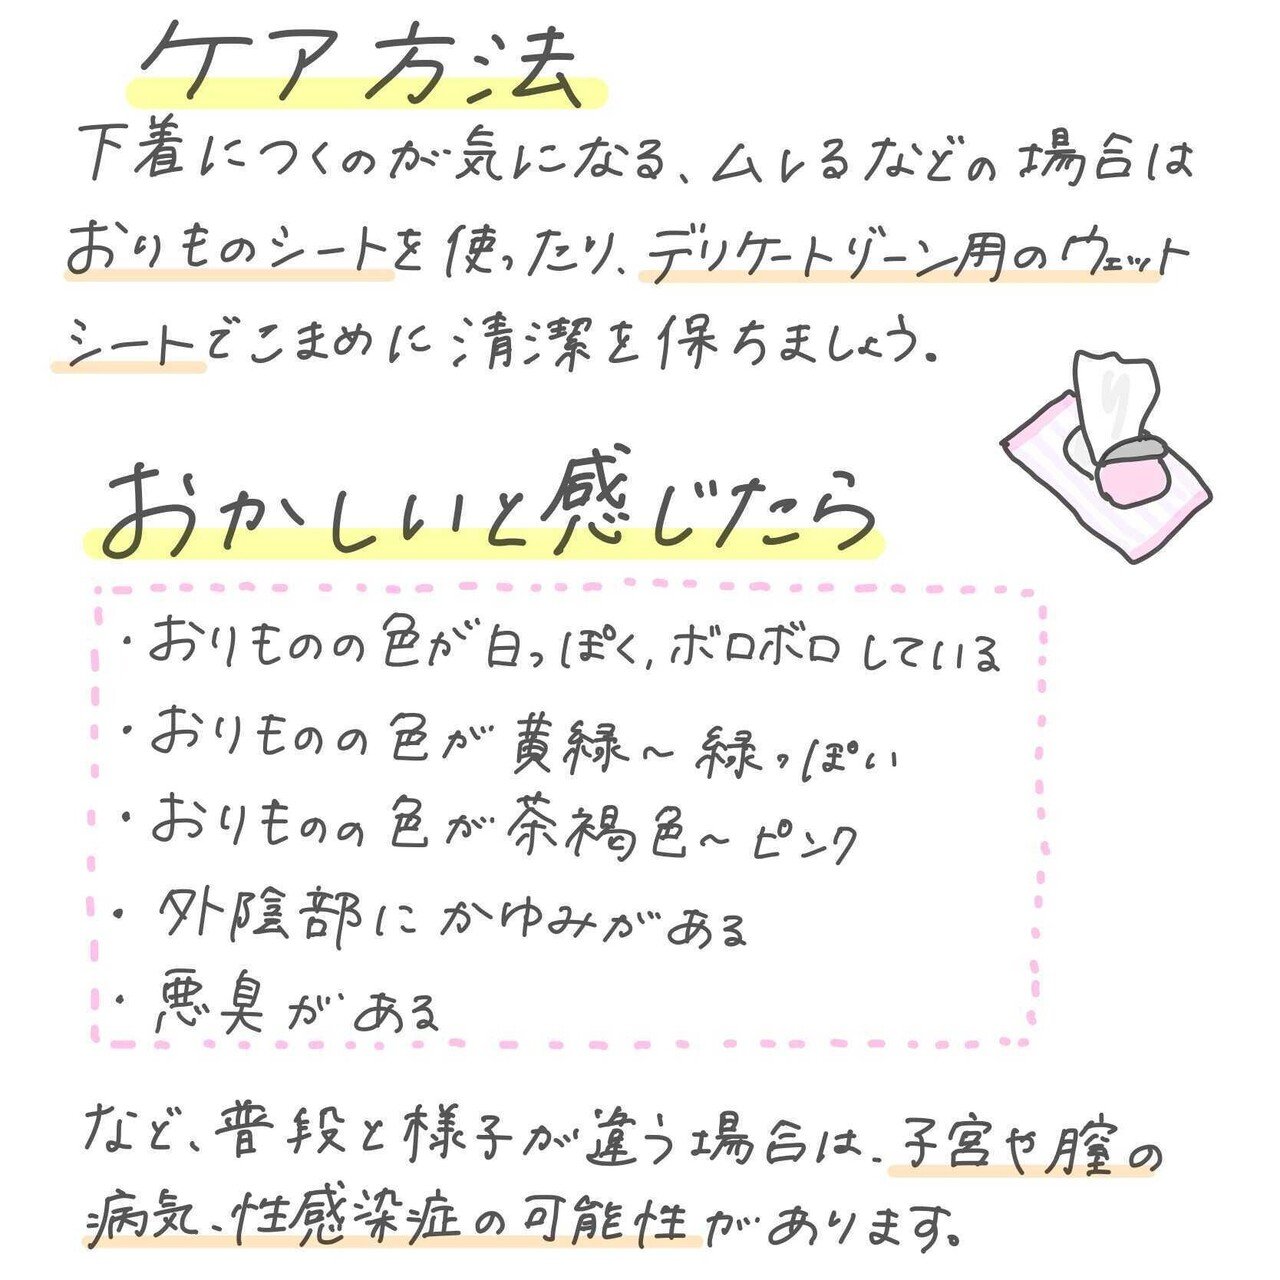 ケア方法
下着につくのが気になる、ムレるなどの場合は
おりものシートを使ったり、デリケートゾーン用のウェット
シートでこまめに清潔を保ちましょう。
おかしいと感じたら
・おりものの色が白っぽく,ボロボロしている
・おりものの色が黄緑〜緑っぽい
・おりものの色が茶褐色〜ピンク
・外陰部にかゆみがある
・悪臭がある
など、普段と様子が違う場合は、子宮や膣の
病気、性感染症の可能性があります。